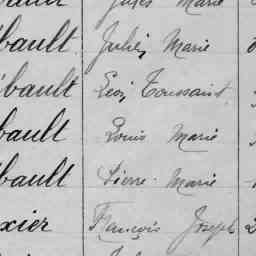 bault Julien Marie
bault Léon Toussaint
bault Louis Marie
bault Pierre Marie
xier François Joseph